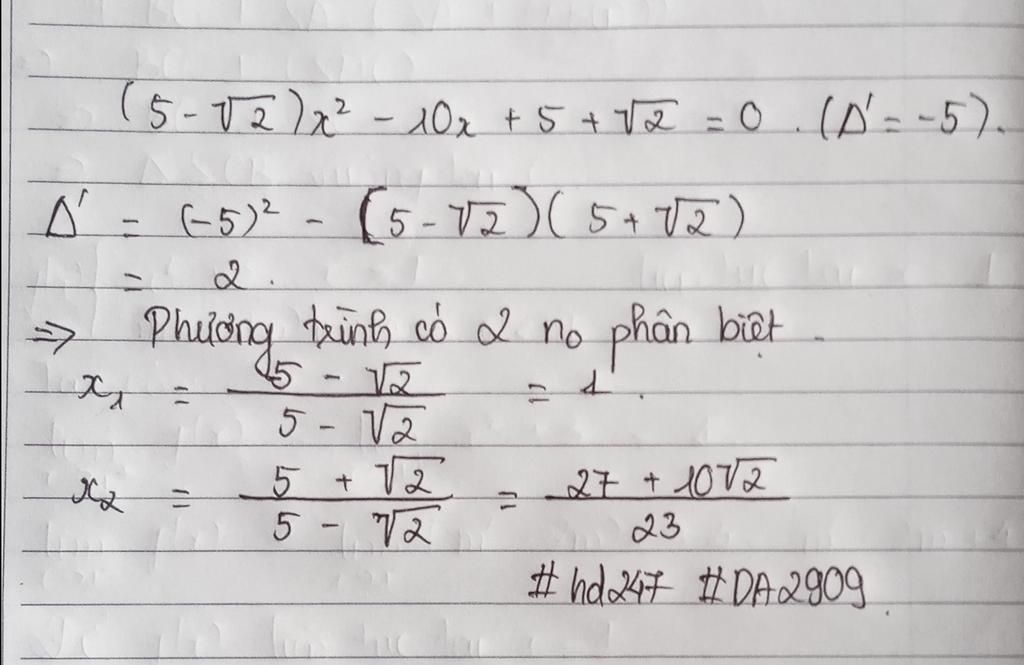 (5-√2)x² - 10x + 5 + √2 = 0. (Δ' = -5).
Δ' = (-5)² - (5-√2)(5+√2)
= 2.
⇒ Phương trình có 2 no phân biệt.
x₁ = (5 - √2)/(5 - √2) = 1.
x₂ = (5 + √2)/(5 - √2) = (27 + 10√2)/23
#hd247 #DA2909.